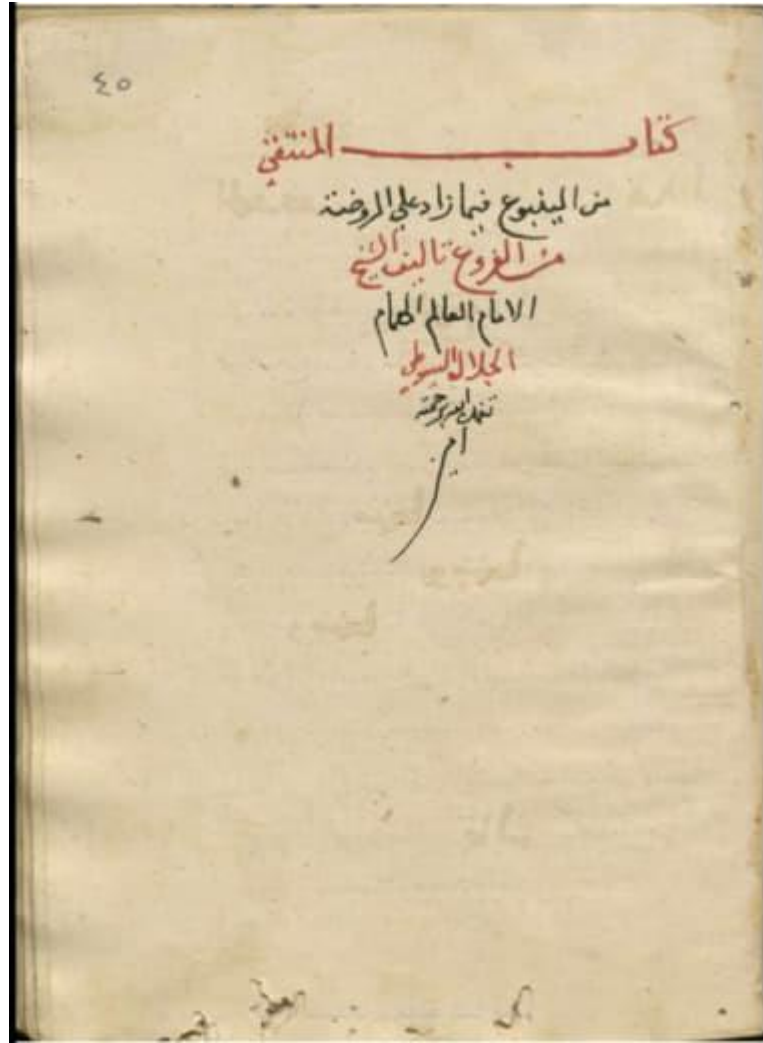 ٤٥
كتاب المنتقي
من الينبوع فيما زاد علي الروضة
من الفروع تاليف الشيخ
الامام العالم الهمام
الجلال السيوطي
تغمده الله برحمته
امين